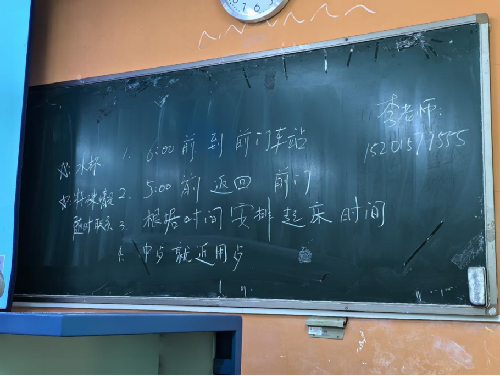 李老师:
☆水杯 1. 6:00 前 到 前门车站
2. 5:00 前 返回 前门
随时联系 3. 根据时间安排起床时间
4. 中步就近用步